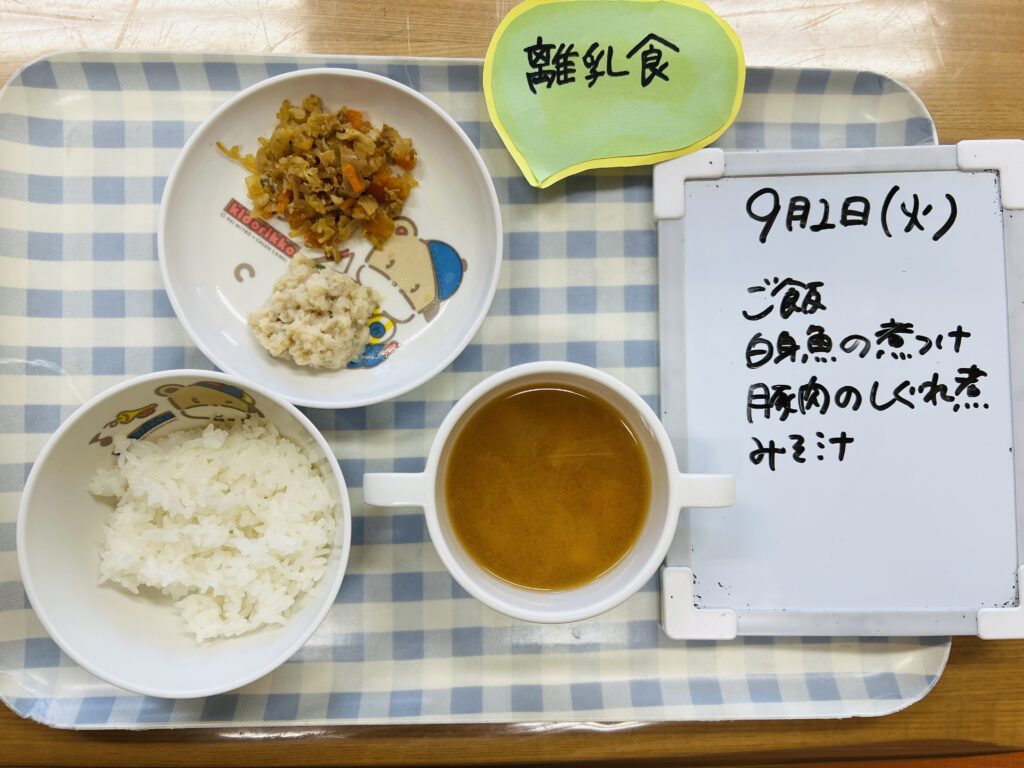 離乳食
9月2日(火)
ご飯
白身魚の煮つけ
豚肉のしぐれ煮
みそ汁
kidorikko